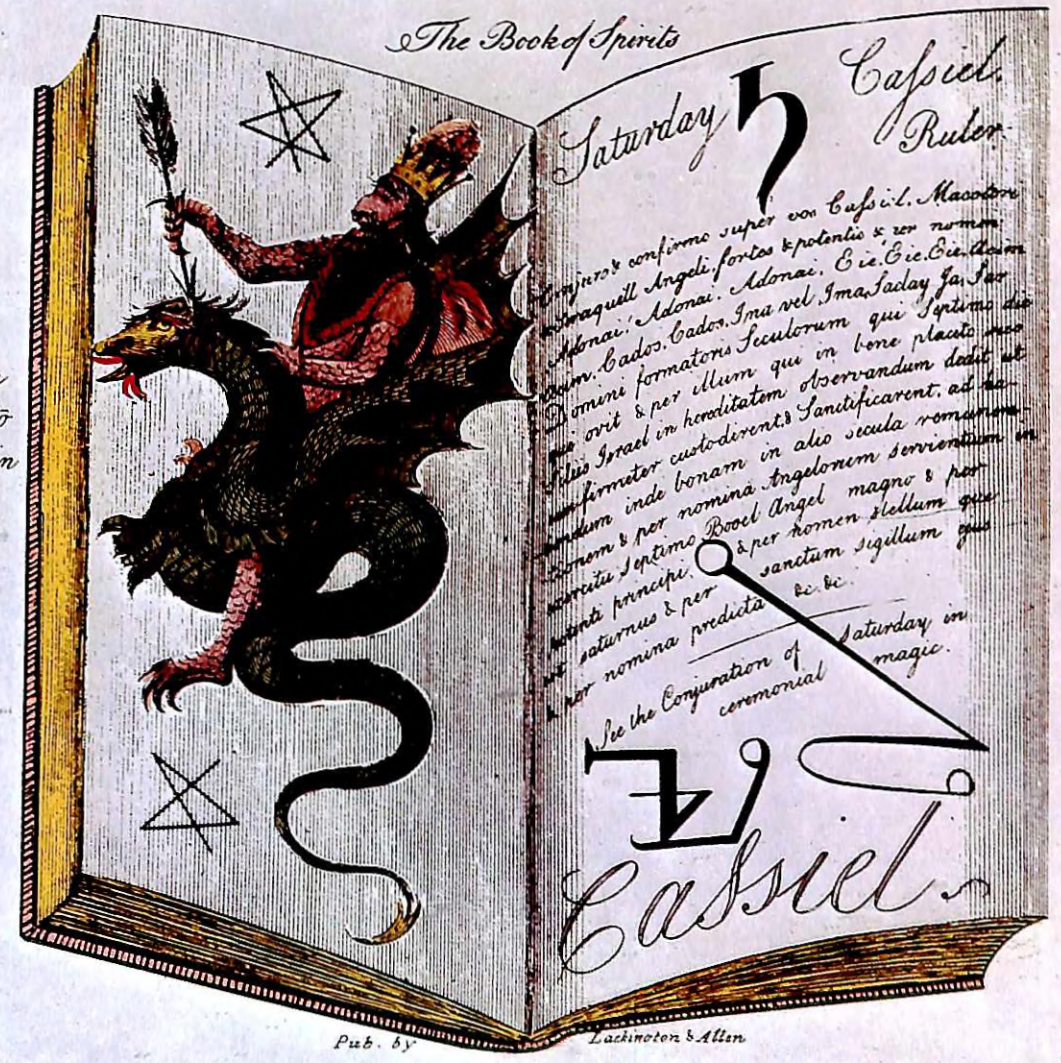 The Book of Spirits
Saturday ♄ Cassiel.
Ruler.
Conjuro & confirmo super vos Cassiel. Macoton
Angeli, fortes & potentis & per nomen
Adonai! Adonai. Adonai. Eie. Eie. Eie. Acim
Acim. Cados. Cados. Ima vel Ima, Saday Ja, Sar
Domini formatoris Seculorum qui Septimo die
que ovit & per illum qui in bene placito suo
filiis Israel in hereditatem observandum dedit ut
firmeter custodirent, & Sanctificarent, ad ha
inde bonam in alio secula remunera
tionem & per nomina Angelonem servientium in
exercitu septimo Booel Angel magno & per
potenti principi. & per homen stellum que
est saturnus & per sanctum sigillum ejus
& per nomina predicta &c. &c.
See the Conjuration of Saturday in
ceremonial magic.
Cassiel.
Pub. by Lackington & Allen
in